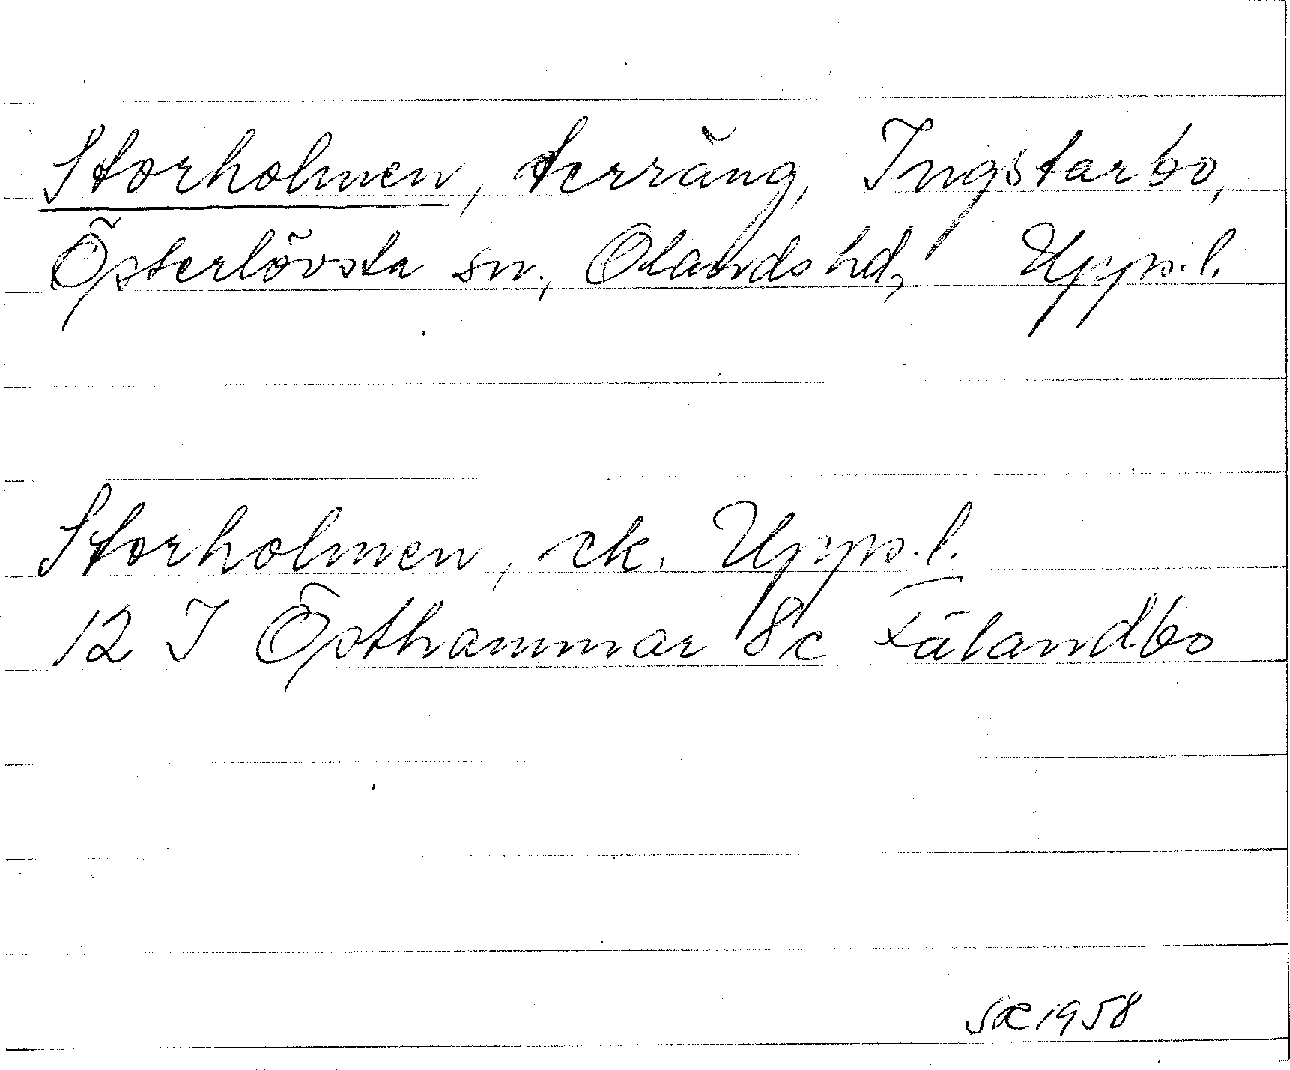 Storholmen, terräng, Ingstarbo,
Österlövsta sn, Olands hd, Uppl.
Storholmen, ek. Uppl.
12 I Östhammar 8c Fälandbo
SÆ 1958